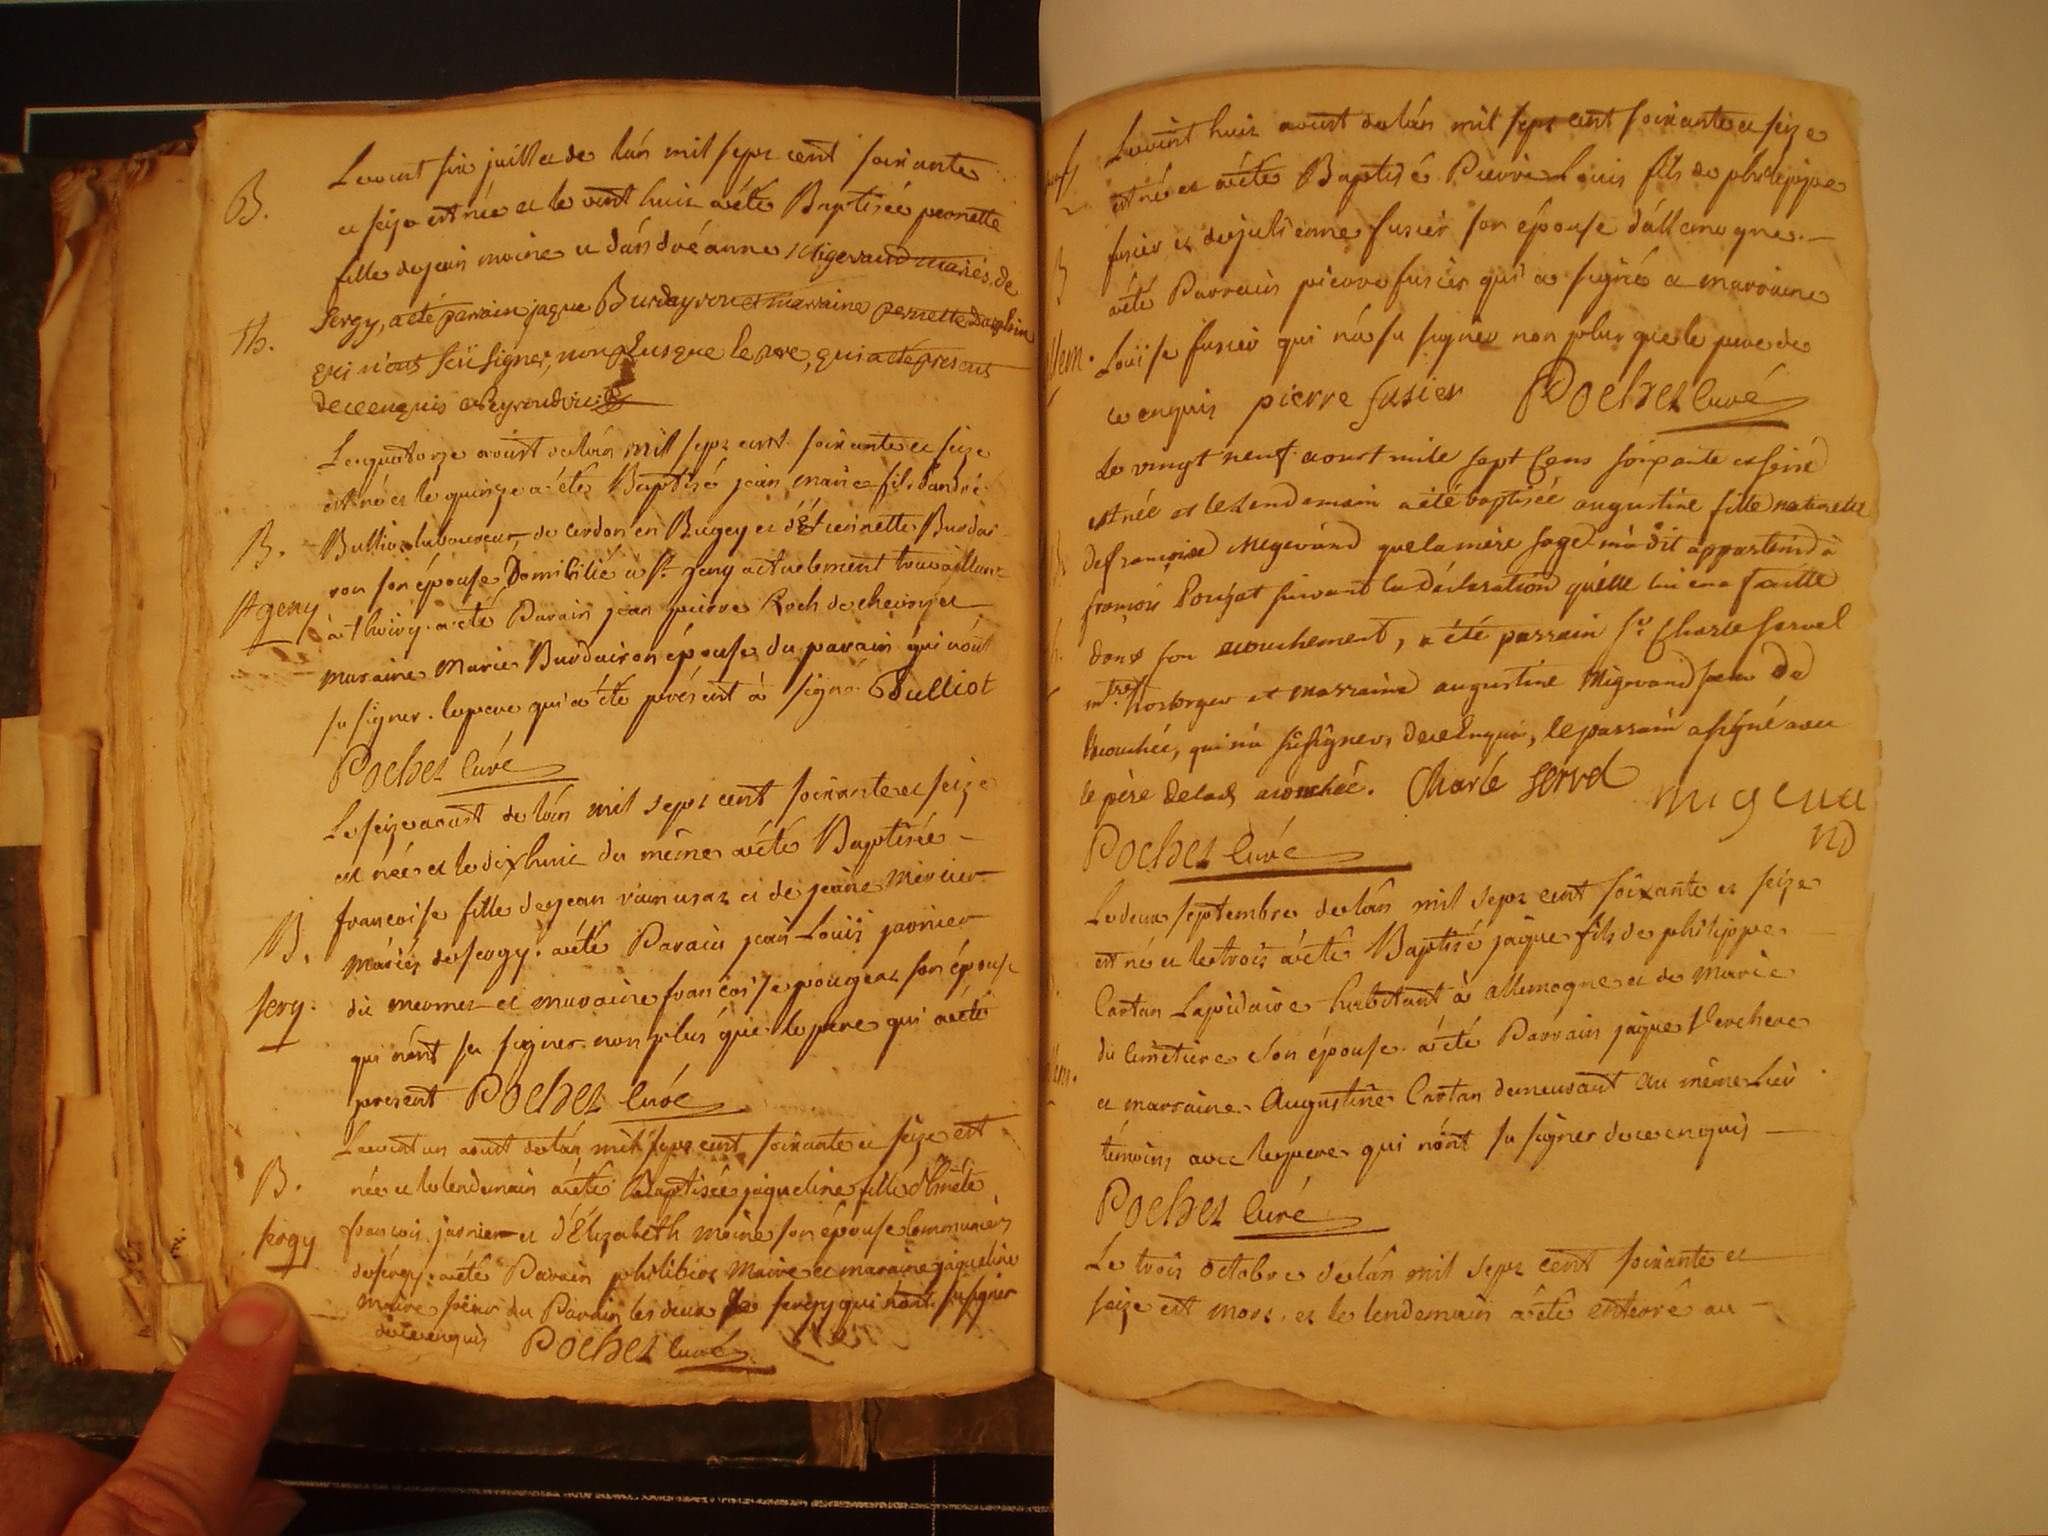 B.
Levint six juillet de lán mil sept cent soixante
et seize est née et le vint huit aété Baptisée pernette
fille dejean moine et dándréanne Migevand mariés de
Th.
Sergy, a eté parrain jaque Burdayron et marraine pernette Dauphin
qui n'ont sçû signer, non plus que le pere, qui a eté present
de ce enquis
Lequatorze aoust delán mil sept cent soixante et seize
est né et le quinze a été Baptisé jean marie fils d'andré
B.
Bulliot laboureur de cerdon en Bugey et d'Etiennette Burdai
ron son épouse Domicilié a St. jeny actuelement travaillant
St geny
à thoiry. a été Parain jean pierre Roch de chevry et
maraine Marie Burdairon épouse du parain qui nónt
su signer. lepere qui a été présent à signé Bulliot
Pochet Curé
Leseize aoust de lán mil sept cent soixante et seize
est née et le dixhuit du même aété Baptisée
B.
francoise fille dejean et de jeane Mercier
Mariés de sergy. aété Parain jean Louis jarnier
sergy.
du meme et maraine francoise pougeat son épouse
qui nónt su signer non plus que le pere qui aété
present Pochet Curé
Levint un aoust delán mil sept cent soixante et seize est
B.
née et le lendemain aété Baptisée jaqueline fille d'hńête
sergy
francois jarnier et d'Elizabeth moine son épouse Communiers
de sergy. aété Parain philibert Maire et maraine jaqueline
Maire sœur du Parain les deux de sergy qui nónt su signer
de ce enquis Pochet Curé
Levint huit aoust delán mil sept cent soixante et seize
est né et aété Baptisé Pierre Louis fils de philippe
fusier et de julienne fusier son épouse dállemogne.
aété Parrain pierre fusier qui a signé et marraine
Louïse fusier qui ná su signer non plus que le pere de
ce enquis pierre fusier Pochet Curé
Le vingt neuf aoust mile sept Cens soixante et seise
est née et le Lendemain a été baptisée augustine fille naturelle
de francoise Migevand que la mère sage m'a dit appartenir à
françois Pougat suivant la déclaration quélle lui en a faitte
dans son acouchement, a été parrain Sr. Charle servel
mtre horloger et marraine augustine Migevand sœur de
l'acouchée, qui n'a sû signer, de ce Enquis, le parrain a signé avec
le père de la acouchée. Charle Servel migeva
nd
Pochet Curé
Ledeux septembre delán mil sept cent soixante et seize
est né et letrois aété Baptisé jaque fils de philippe
Cartan Lapidaire habitant à allemogne et de Marie
du Cimetiere son épouse. aété Parrain jaque Verchere
et marraine Augustine Cartan demeurant au même Lieu
témoins avec le pere qui nónt su signer de ce enquis
Pochet Curé
Le trois octobre delán mil sept cent soixante et
seize est mort et le lendemain a été enterré au